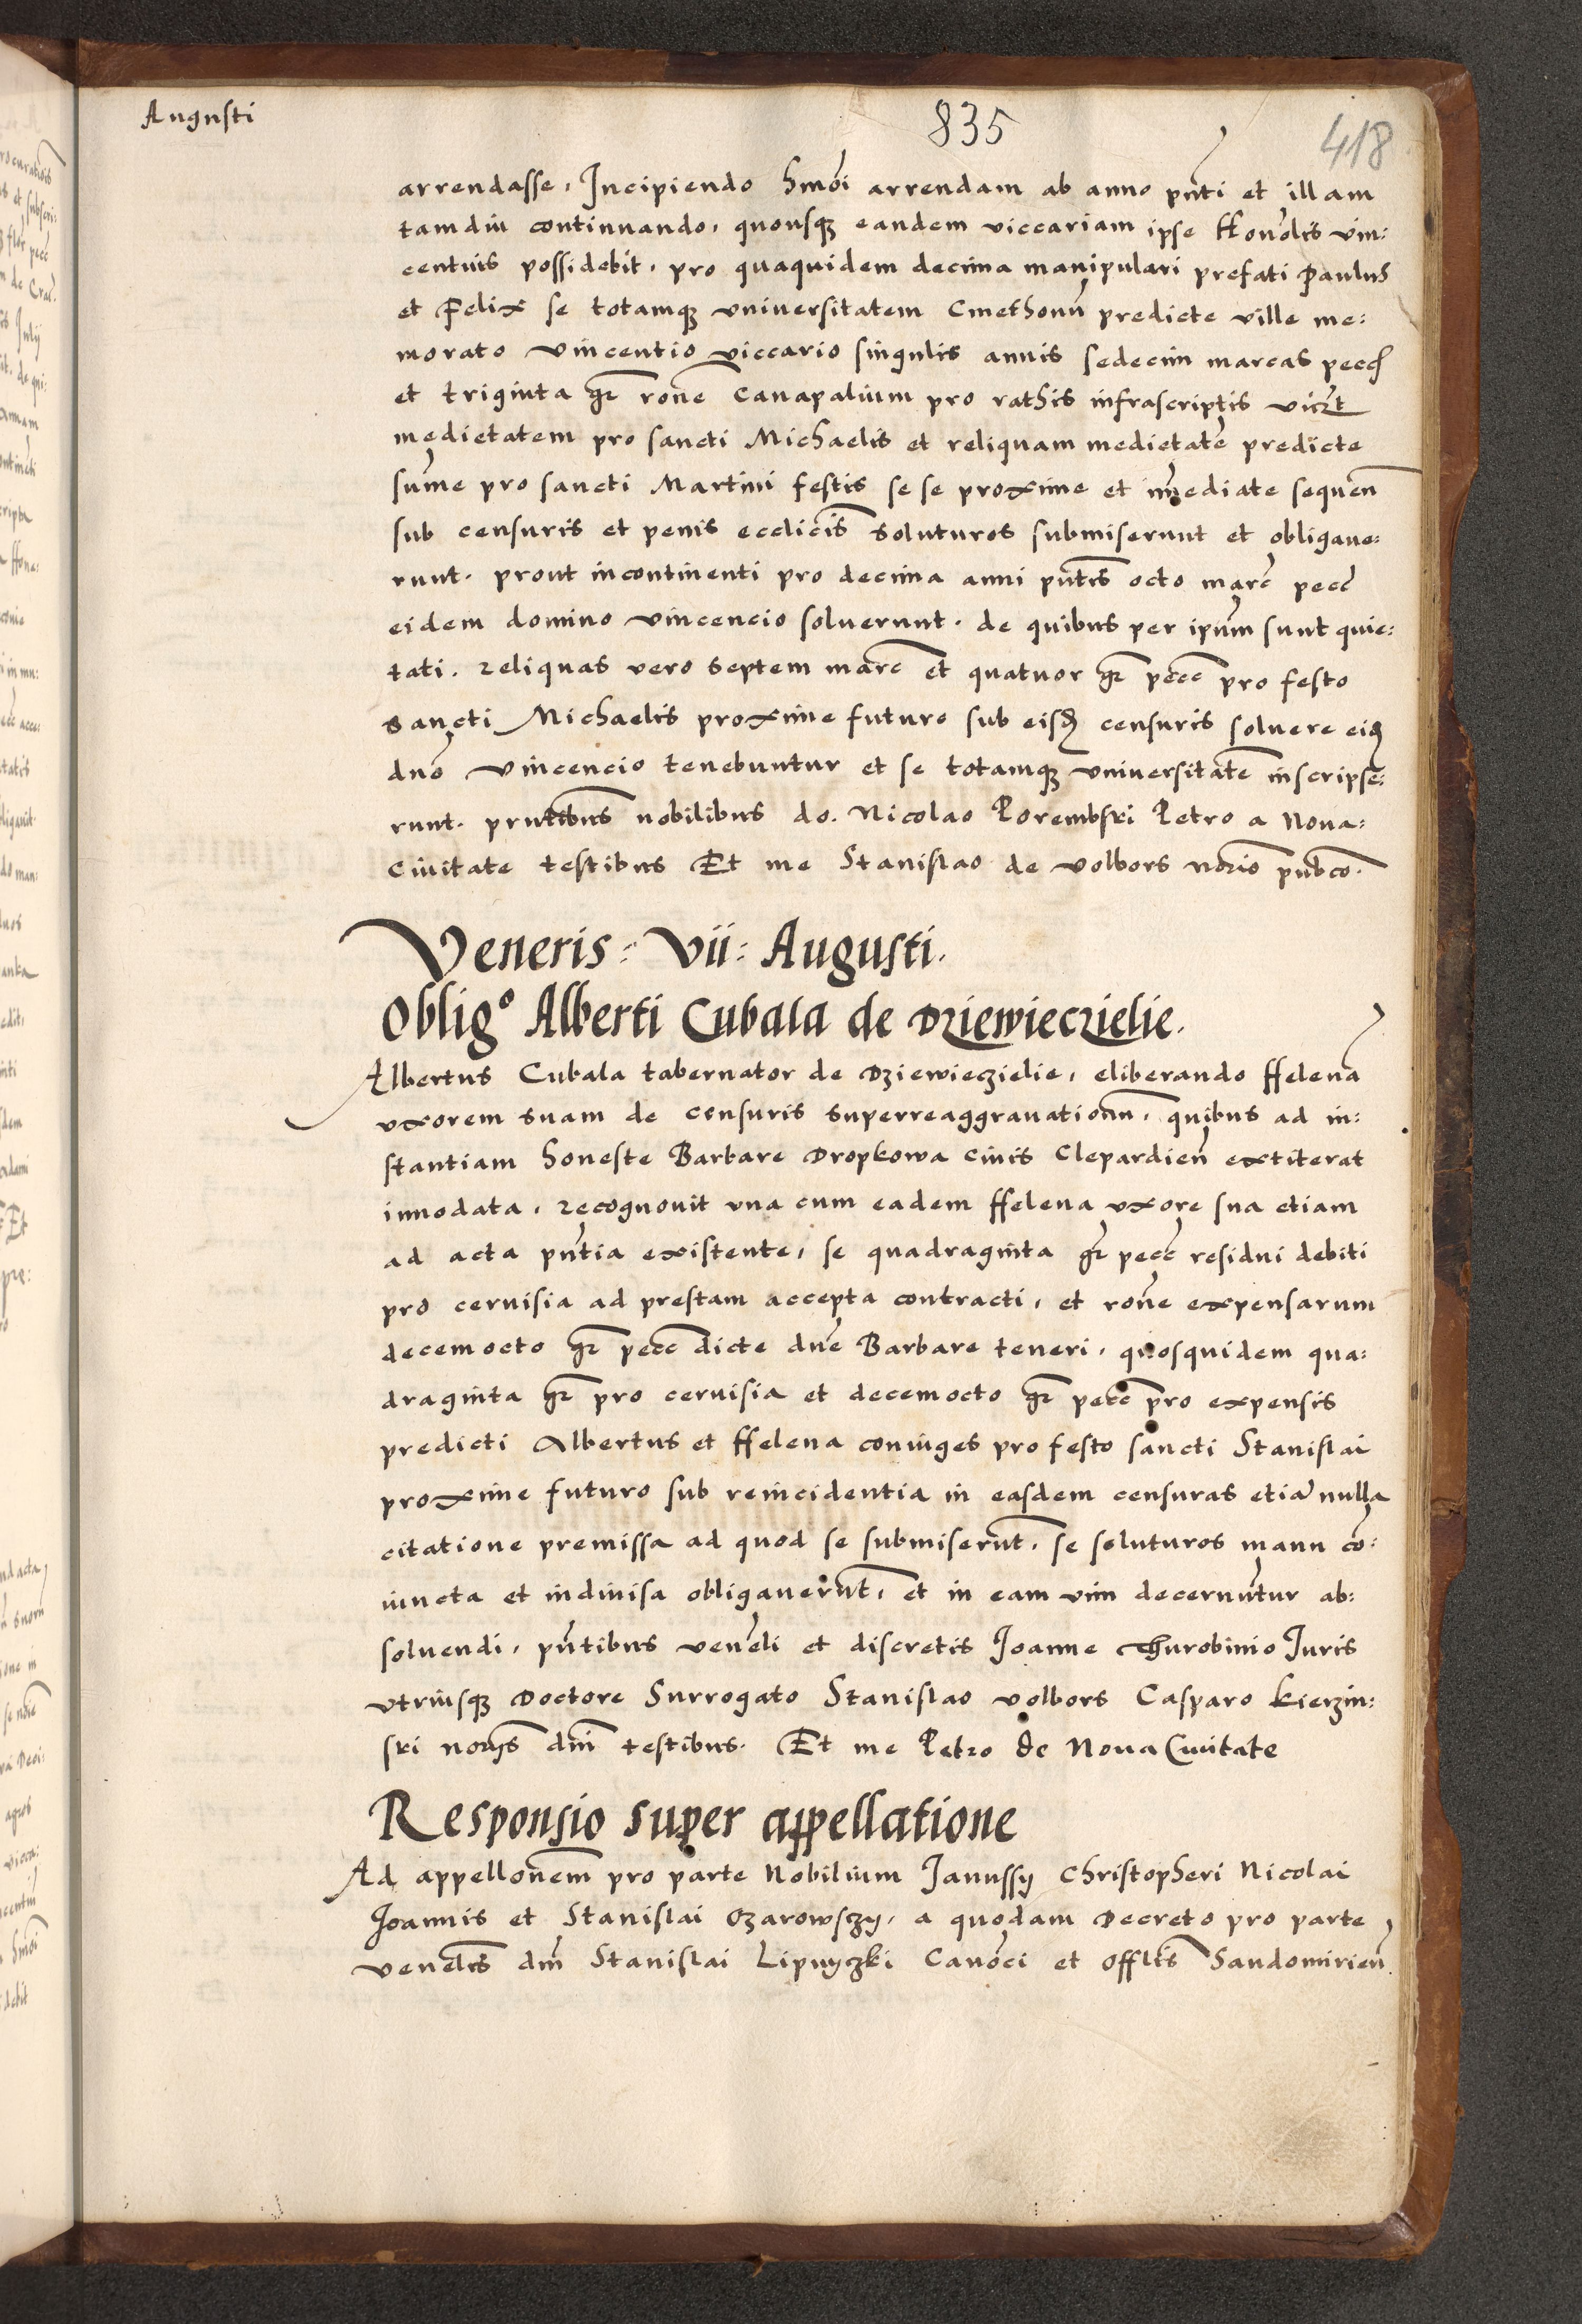 Augusti
835
418
arrendasse, Incipiendo hmõi arrendam ab anno pñti et illam
tamdiu continuando, quousqꝫ eandem viccariam ipse Honoꝛlis vin:
centius possidebit, pro quaquidem decima manipulari prefati Paulus
et Felix se totamqꝫ vniuersitatem Cmethonũ predicte ville me:
morato Vincentio viccario singulis annis sedecim marcas pecc
et triginta gr rone Canapalium pro rathis infrascriptis viczt
medietatem pro sancti Michaelis et reliquam medietatẽ predicte
sume pro sancti Martini festis se se proxime et imediate sequen
sub censuris et penis ecclicis soluturos submiserunt et obligaue:
runt. prout incontinenti pro decima anni pntis octo marc pecc
eidem domino Vincencio soluerunt. de quibus per ipum sunt quie:
tati. reliquas vero septem marc et quatuor gr pecc pro festo
sancti Michaelis proxime futuro sub eisd censuris soluere eid
dno Vincencio tenebuntur et se totamqꝫ vniuersitatẽ inscripse:
runt. pñtibus nobilibus do. Nicolao Porembski Petro a Noua:
Ciuitate testibus Et me Stanislao de Volbors norio pubco.
Veneris: Vii: Augusti.
Obligº Alberti Cubala de Dziewieczielie.
Albertus Cubala tabernator de Dziewieczielie, eliberando Helenã
vxorem suam de censuris superreaggrauationũ, quibus ad in:
stantiam honeste Barbare Dropkowa ciuis Clepardien extiterat
innodata, recognouit vna cum eadem Helena vxore sua etiam
ad acta pñtia existente, se quadraginta gr pecc residui debiti
pro ceruisia ad prestam accepta contracti, et rone expensarum
decemocto gr pecc dicte dne Barbare teneri, quosquidem qua:
draginta gr pro ceruisia et decemocto gr pecc pro expensis
predicti Albertus et Helena coniuges pro festo sancti Stanislai
proxime futuro sub reincidentia in easdem censuras etiã nulla
citatione premissa ad quod se submiserũt, se soluturos manu cõ:
iuncta et indiuisa obligauerũt, et in eam vim decernuntur ab:
soluendi, pñtibus veneli et discretis Joanne Thurobinio Juris
vtriusqꝫ Doctore Surrogato Stanislao Volbors Casparo Kierzin:
ski norijs dni testibus. Et me Petro de Noua Ciuitate
Responsio super appellatione
Ad appellonem pro parte Nobilium Janussy Christopheri Nicolai
Joannis et Stanislai Ozarowsczy, a quodam Decreto pro parte
venelis dni Stanislai Lipnyczki Canoci et Offlis Sandomirien